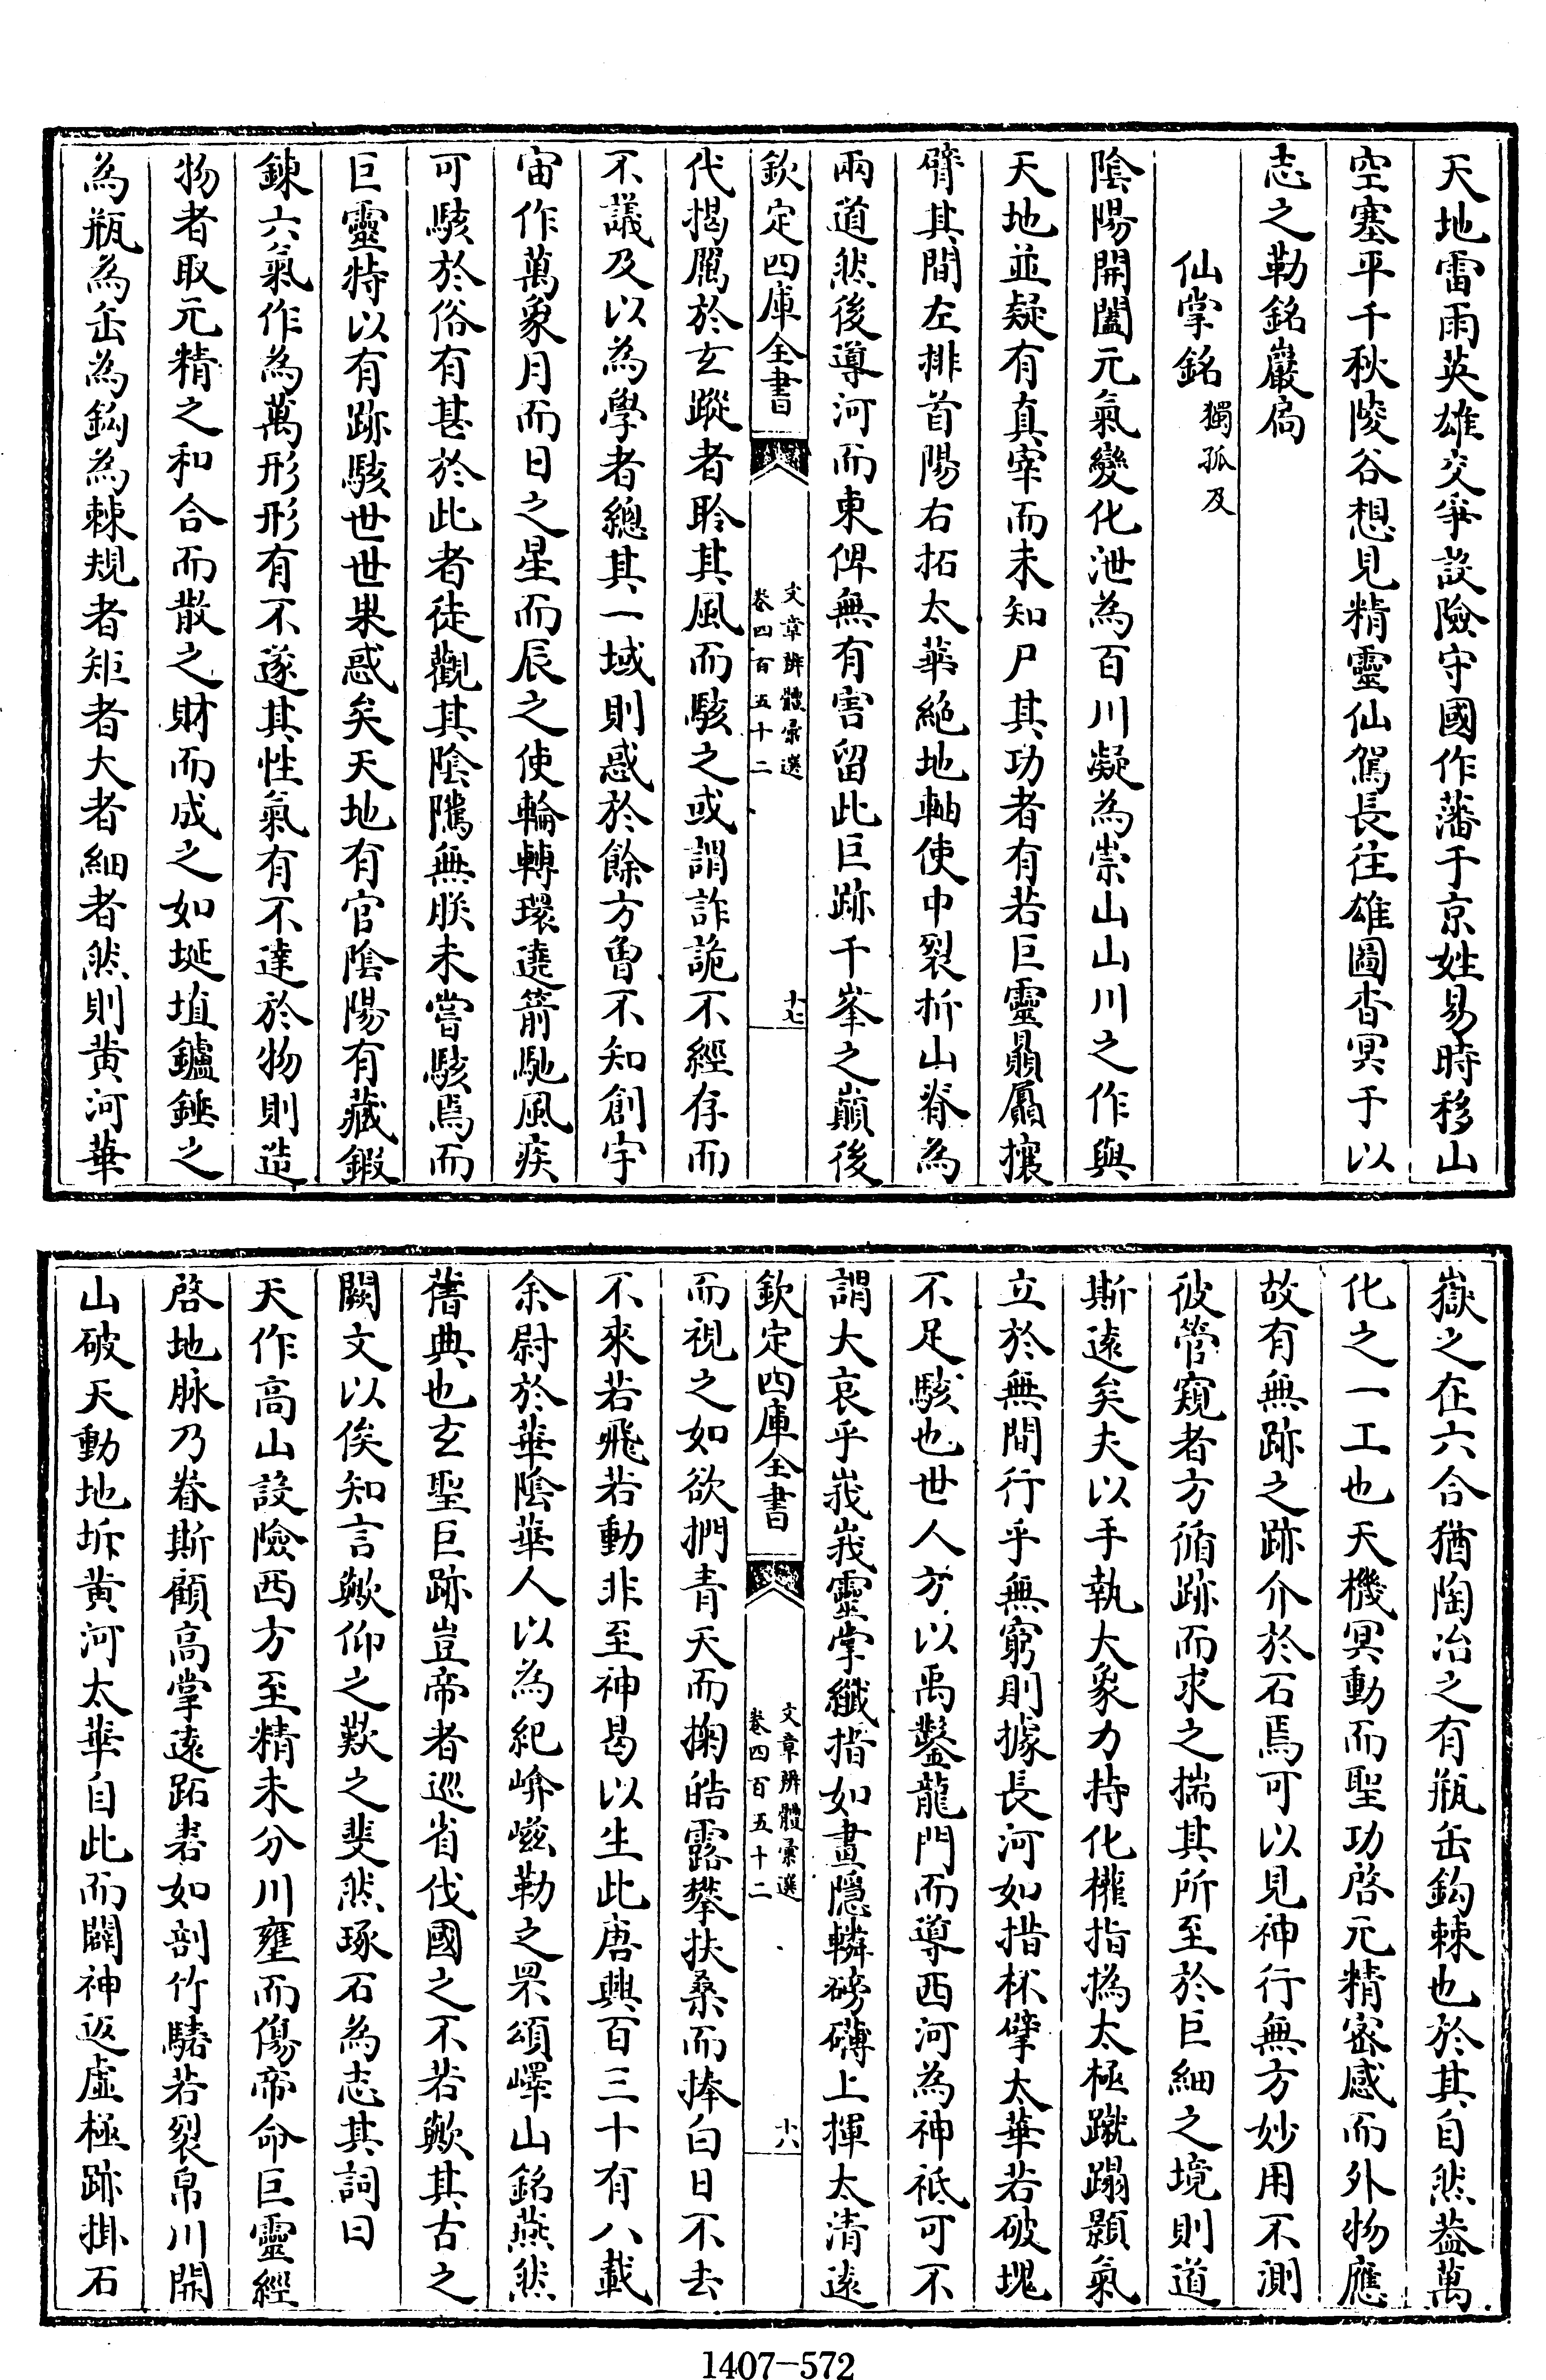 天地雷雨英雄交爭設險守國作藩于京姓易時移山
空塞平千秋陵谷想見精靈仙駕長往雄圖杳冥于以
志之勒銘巖扃
仙掌銘 獨孤及
陰陽開闔元氣變化泄為百川凝為崇山山川之作與
天地並疑有真宰而未知尸其功者有若巨靈贔屭攘
臂其間左排首陽右拓太華絶地軸使中裂拆山脊為
兩道然後導河而東俾無有害留此巨跡千峯之巔後
欽定四庫全書 文章辨體彙選 卷四百五十二 十七
代揭厲於玄蹤者聆其風而駭之或謂詐詭不經存而
不議及以為學者總其一域則惑於餘方曾不知創宇
宙作萬象月而日之星而辰之使輪轉環遶箭馳風疾
可駭於俗有甚於此者徒觀其陰隲無朕未嘗駭焉而
巨靈特以有跡駭世世果惑矣天地有官陰陽有藏鍛
鍊六氣作為萬形形有不遂其性氣有不達於物則造
物者取元精之和合而散之財而成之如埏埴鑪錘之
為瓶為缶為鈎為棘規者矩者大者細者然則黄河華
嶽之在六合猶陶冶之有瓶缶鈎棘也於其自然葢萬
化之一工也天機冥動而聖功啓元精密感而外物應
故有無跡之跡介於石焉可以見神行無方妙用不測
彼管窺者方循跡而求之揣其所至於巨細之境則道
斯逺矣夫以手執大象力持化權指撝太極蹴蹋顥氣
立於無間行乎無窮則據長河如措杯擘太華若破塊
不足駭也世人方以禹鑿龍門而導西河為神祇可不
謂大哀乎峩峩靈掌纖指如畫隱轔磅礴上揮太清逺
欽定四庫全書 文章辨體彙選 卷四百五十二 十八
而視之如欲捫青天而掬皓露攀扶桑而捧白日不去
不來若飛若動非至神曷以生此唐興百三十有八載
余尉於華陰華人以為紀嶗嵫勒之罘頌嶧山銘燕然
舊典也玄聖巨跡豈帝者巡省伐國之不若歟其古之
闕文以俟知言歟仰之歎之斐然琢石為志其詞曰
天作高山設險西方至精未分川壅而傷帝命巨靈經
啓地脉乃眷斯顧高掌逺跖砉如剖竹騞若裂帛川開
山破天動地坼黄河太華自此而闢神返虛極跡掛石
1407—572